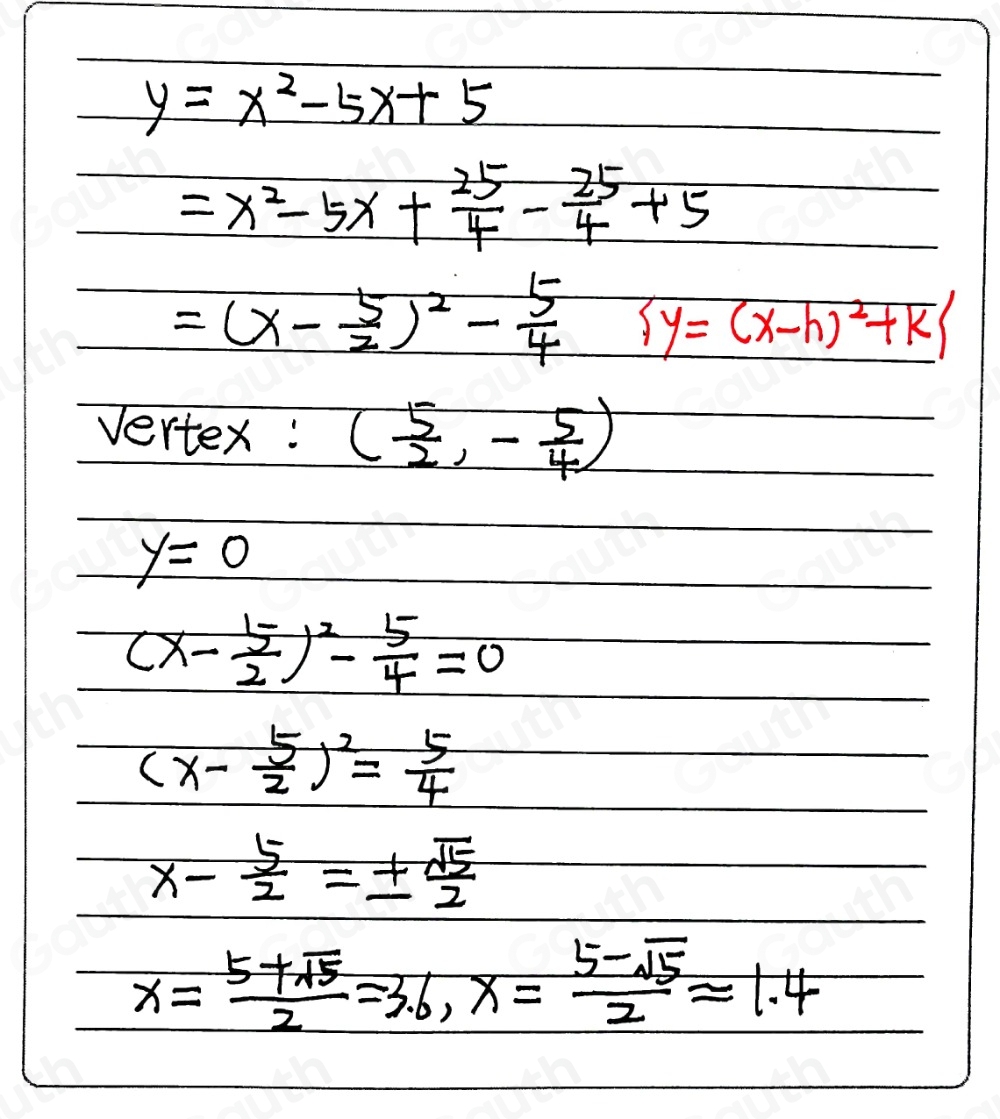 y = x² - 5x + 5
= x² - 5x + 25/4 - 25/4 + 5
= (x - 5/2)² - 5/4 {y = (x-h)² + k}
Vertex : (5/2, - 5/4)
y = 0
(x - 5/2)² - 5/4 = 0
(x - 5/2)² = 5/4
x - 5/2 = ± √5/2
x = (5+√5)/2 = 3.6, x = (5-√5)/2 ≈ 1.4